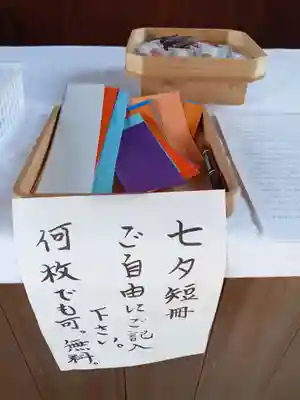 七夕短冊
ご自由にご記入
下さい。
何枚でも可。無料。